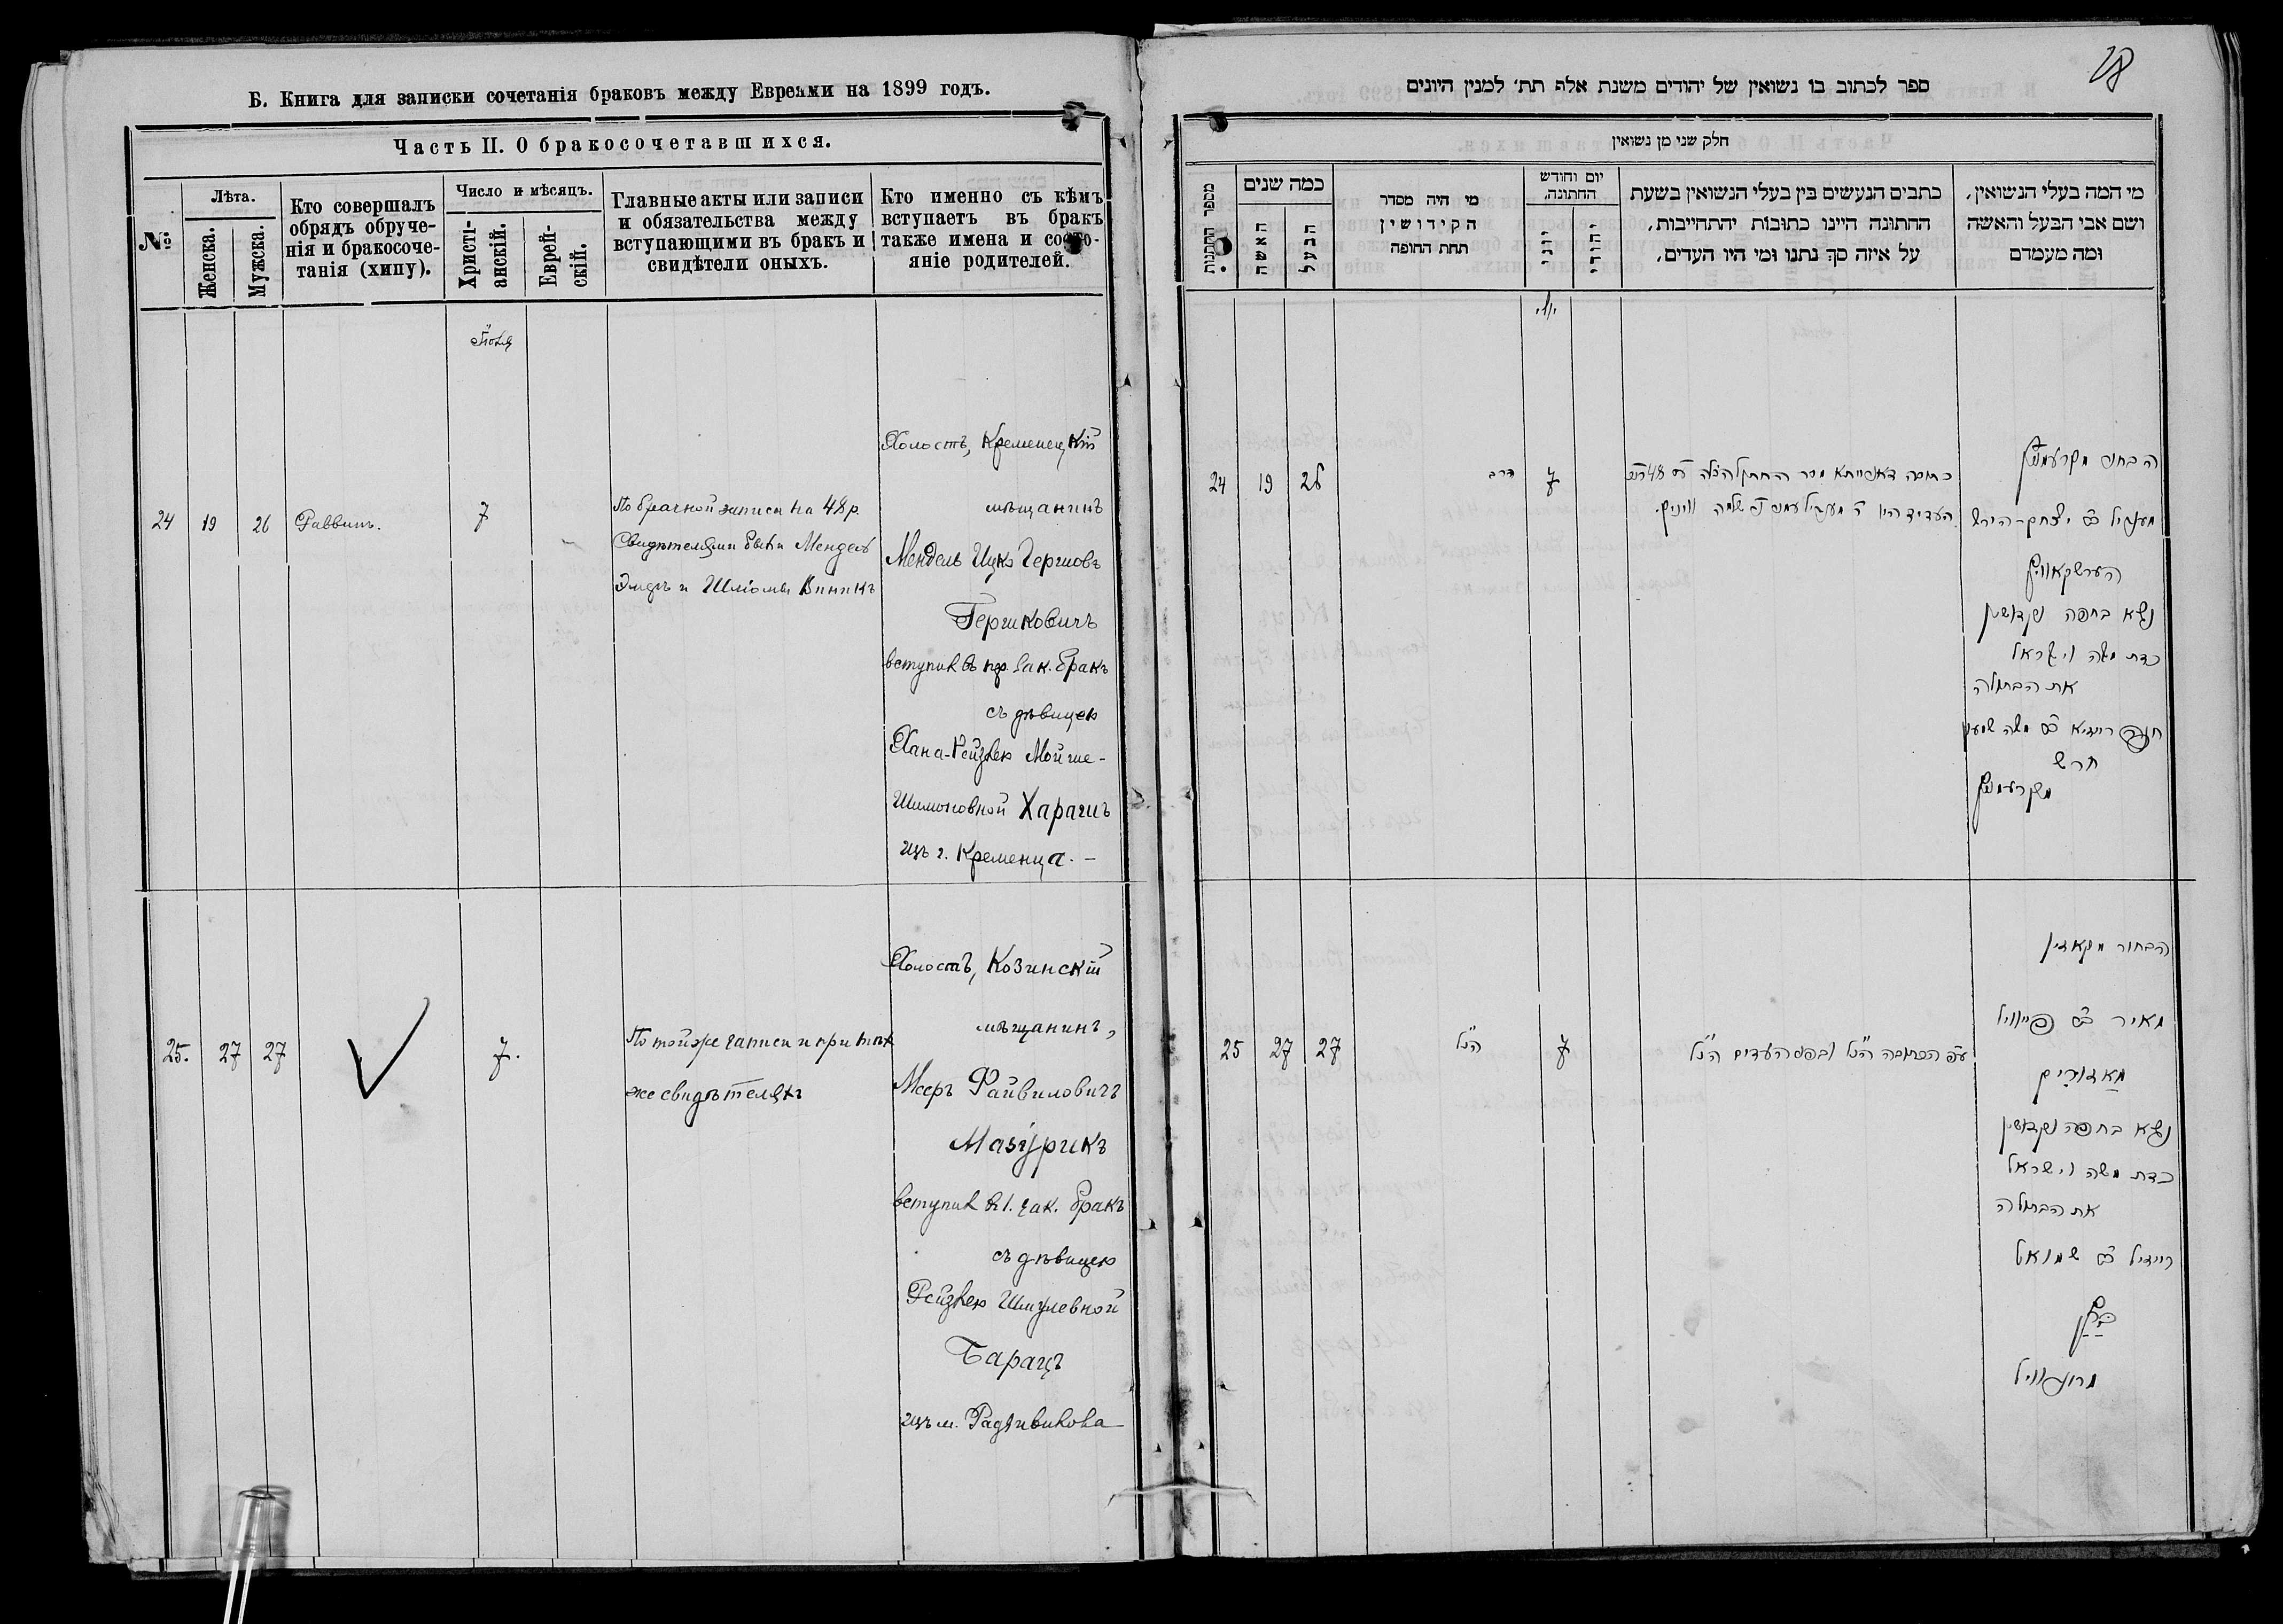 Б. Книга для записки сочетанія браковъ между Евреями на 1899 годъ.
Часть II. О бракосочетавшихся.
№
Лѣта.
Женска.
Мужска.
Кто совершалъ
обрядъ обруче-
нія и бракосоче-
танія (хипу).
Число и мѣсяцъ.
Христі-
анскій.
Еврей-
скій.
Главные акты или записи
и обязательства между
вступающими въ бракъ и
свидѣтели оныхъ.
Кто именно съ кѣмъ
вступаетъ въ бракъ
также имена и состо-
яніе родителей.
Іюля
24
19
26
Раввинъ.
7
По брачной записи на 48 р.
Свидѣтелями были Мендель
и Шліома Виникъ
Холостъ, Кременецкій
мѣщанинъ
Мендель Ицко Гершовъ
Гершковичъ
вступилъ въ пер. зак. бракъ
съ дѣвицею
Хана-Рейзлею Мойше-
Шимоновной Харашъ
изъ г. Кременца. –
25.
27
27
7.
По той же записи и при тѣхъ
же свидѣтеляхъ
Холостъ, Козинскій
мѣщанинъ,
Мееръ Файвиловичъ
Мазурикъ
вступилъ въ 1. зак. бракъ
съ дѣвицею
Рейзлею Шмулевной
Барацъ
изъ м. Радзивилова
18
ספר לכתוב בו נשואין של יהודים משנת אלף תת׳ למנין היונים
חלק שני מן נשואין
מספר החתונות
כמה שנים
האשה
הבעל
מי היה מסדר
הקידושין
תחת החופה
יום וחודש
החתונה.
יוני
יהודי
כתבים הנעשים בין בעלי הנשואין בשעת
החתונה היינו כתובות יהתחייבות,
על איזה סך נתנו ומי היו העדים,
מי המה בעלי הנשואין,
ושם אבי הבעל והאשה
ומה מעמדם
יולי
24
19
26
הרב
7
הבחור מקרעמניץ
מענדיל יצחק-הירש
הערשקאוויץ
נשא בחפה וקדושין
כדת משה וישראל
את הבתולה
חנה רייזיא משה שמעון
חרש
מקרעמניץ
25
27
27
הנ״ל
7
ע״פ הכתובה הנ״ל ובפני העדים הנ״ל
הבחור מקאזין
מאיר פייוויל
מאזוריק
נשא בחפה וקדושין
כדת משה וישראל
את הבתולה
רייזיל שמואל